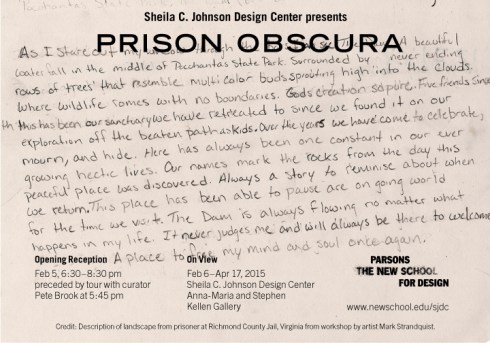 Sheila C. Johnson Design Center presents
PRISON OBSCURA
As I stare out my window through the
A beautiful
waterfall in the middle of Pocahontas State Park. Surrounded by never ending
rows of trees that resemble multi color buds sprouting high into the clouds.
Where wildlife somes with no boundaries. Gods creation so pure. True friends since
this has been our sanctuary we have retreated to since we found it on our
exploration off the beaten path as kids. Over the years we have come to celebrate,
mourn, and hide. Here has always been one constant in our ever
growing hectic lives. Our names mark the rocks from the day this
peaceful place was discovered. Always a story to reminise about when
we return. This place has been able to pause are on going world
for the time we visit. The Dam is always flowing no matter what
happens in my life. It never judges me and will always be there to welcome
A place to my mind and soul once again.
Opening Reception
Feb 5, 6:30–8:30 pm
preceded by tour with curator
Pete Brook at 5:45 pm
On View
Feb 6–Apr 17, 2015
Sheila C. Johnson Design Center
Anna-Maria and Stephen
Kellen Gallery
PARSONS
THE NEW SCHOOL
FOR DESIGN
www.newschool.edu/sjdc
Credit: Description of landscape from prisoner at Richmond County Jail, Virginia from workshop by artist Mark Strandquist.